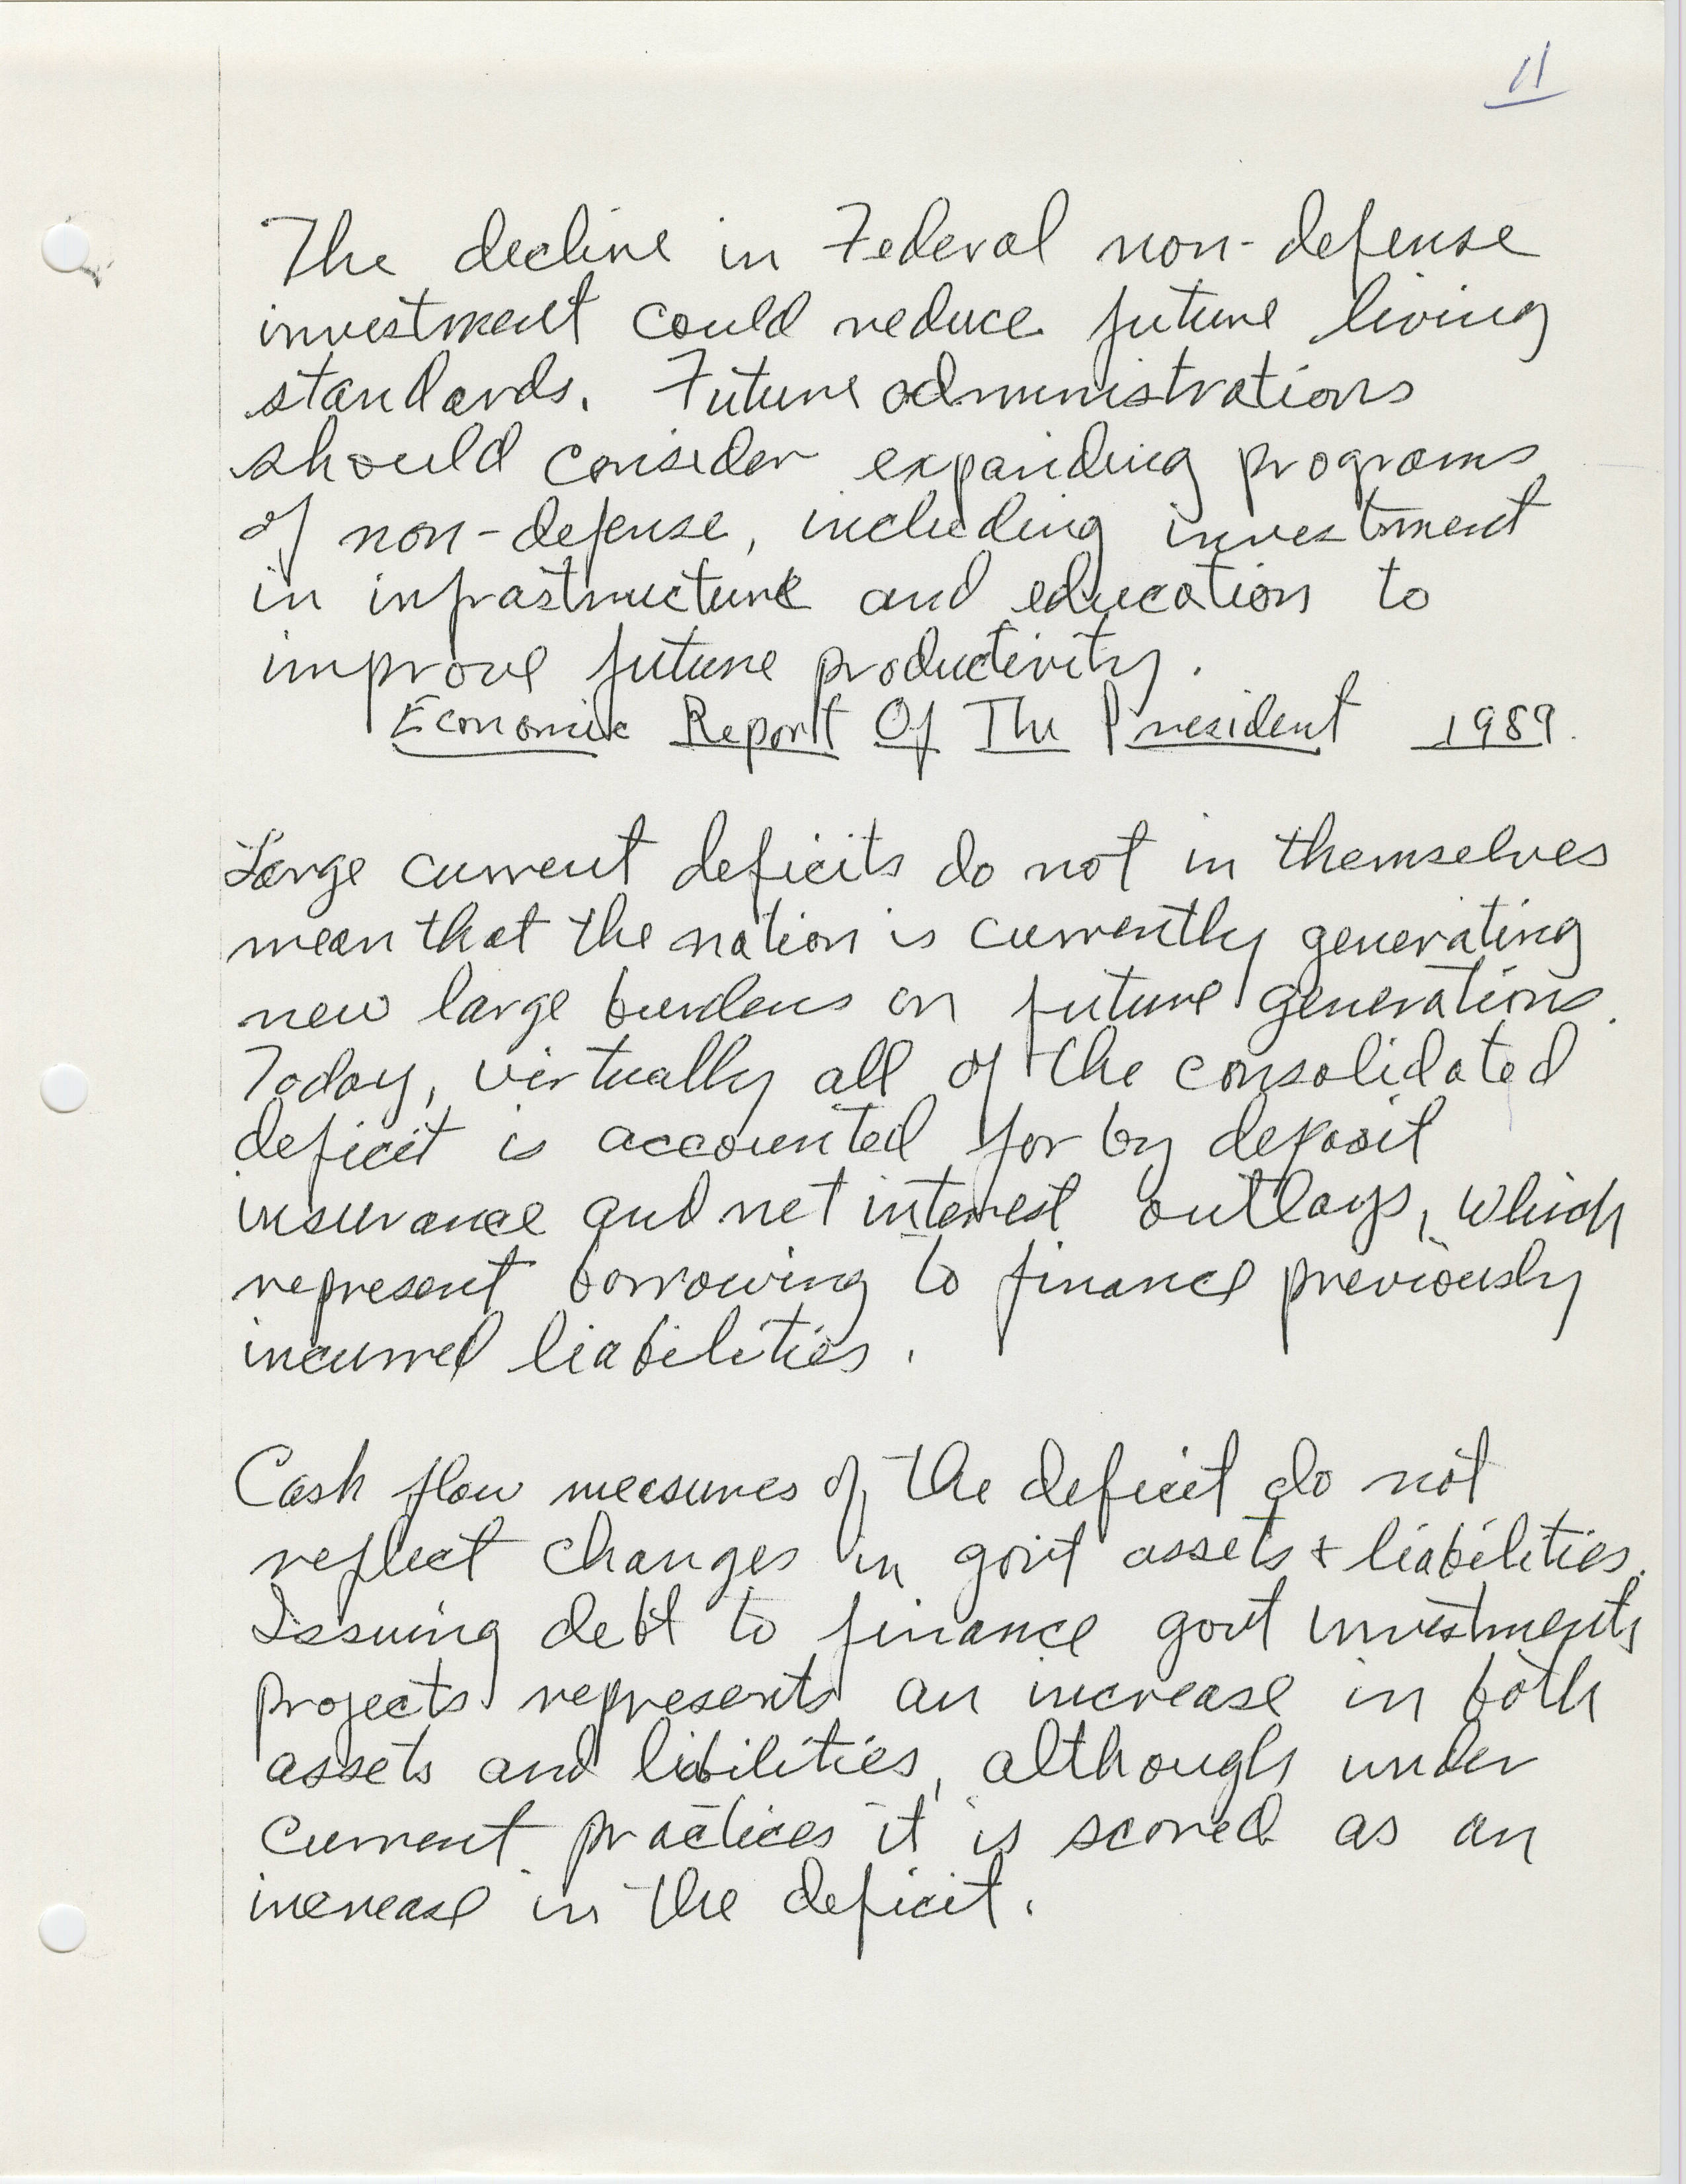 11
The decline in Federal non-defense
investment could reduce future living
standards. Future administrations
should consider expanding programs
of non-defense, including investment
in infrastructure and education to
improve future productivity.
Economic Report Of The President 1989.
Large current deficits do not in themselves
mean that the nation is currently generating
new large burdens on future generations.
Today, virtually all of the consolidated
deficit is accounted for by deposit
insurance and net interest outlays, which
represent borrowing to finance previously
incurred liabilities.
Cash flow measures of the deficit do not
reflect changes in gov't assets + liabilities.
Issuing debt to finance govt investments
projects represents an increase in both
assets and libilities, although under
current practices it is scored as an
increase in the deficit.